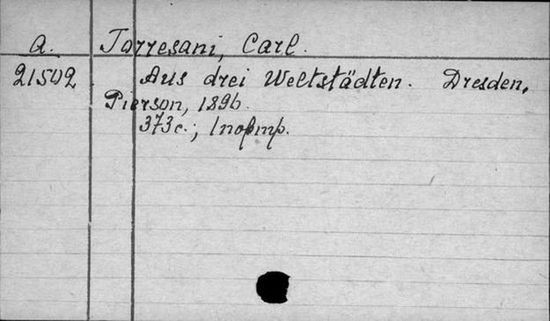 A. Torresani, Carl.
21502 Aus drei Weltstädten. Dresden,
Pierson, 1896.
373c.; 1 портр.